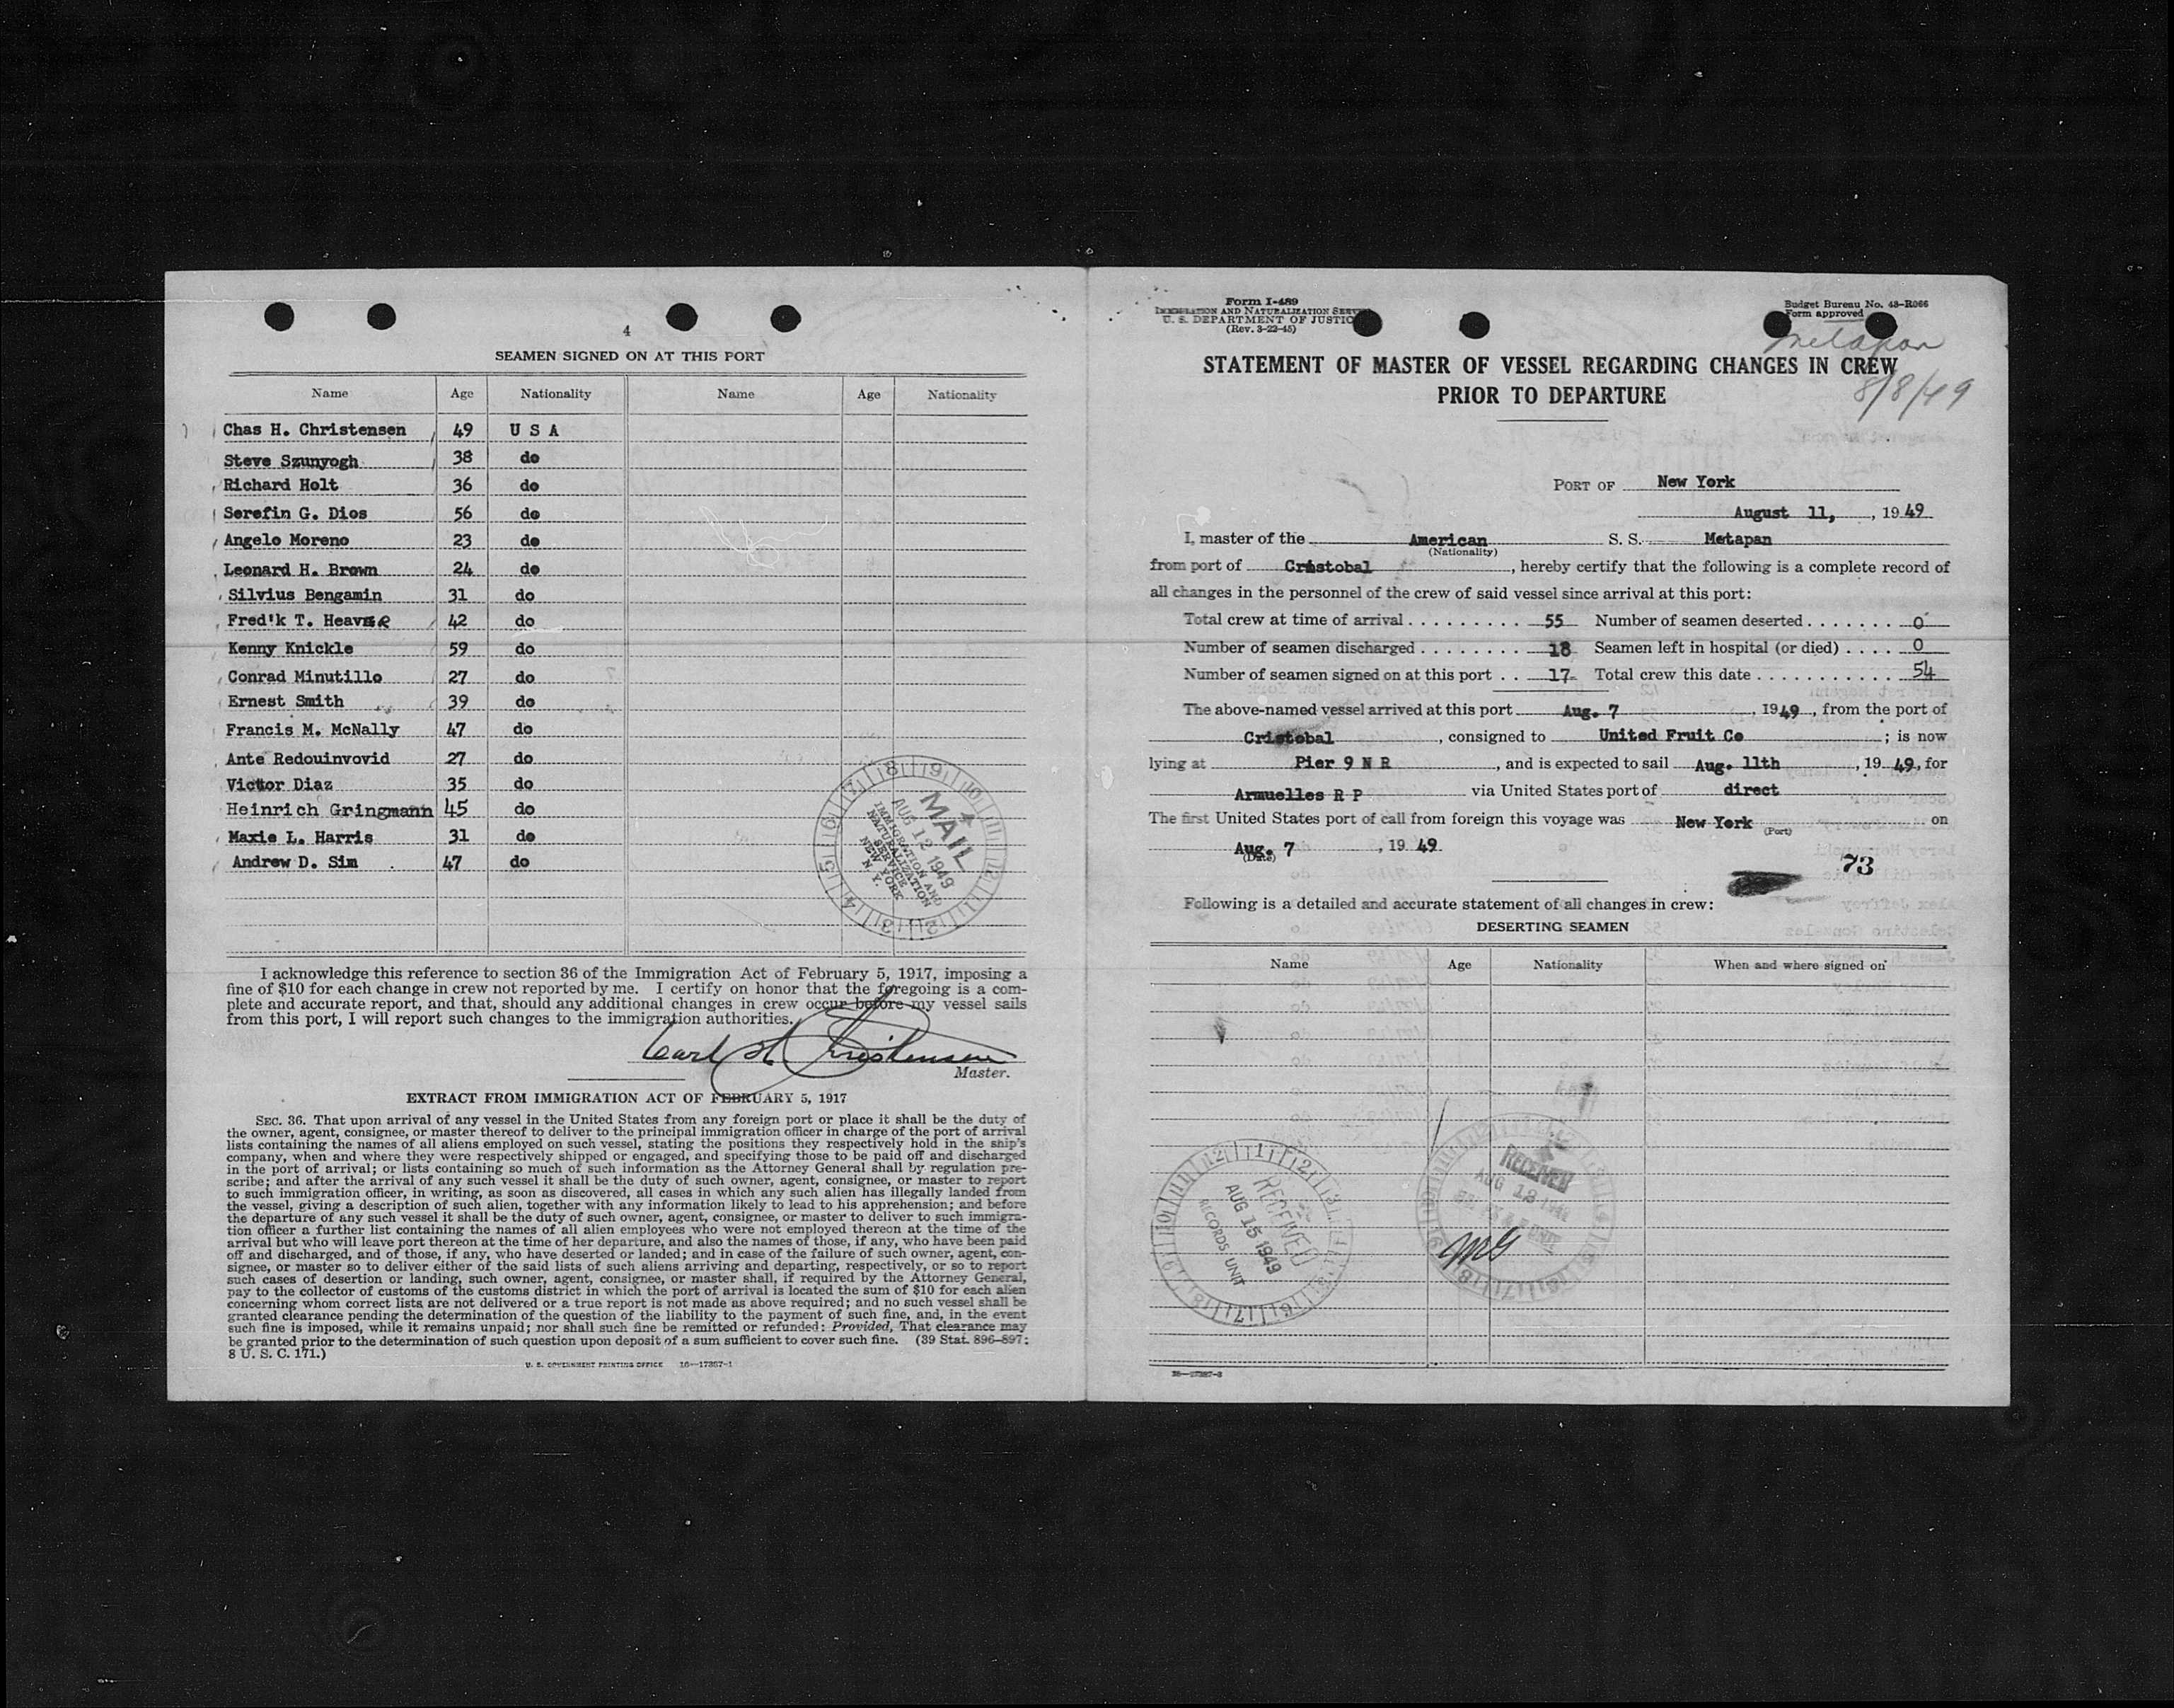 4
SEAMEN SIGNED ON AT THIS PORT
Name Age Nationality Name Age Nationality
Chas H. Christensen 49 U S A
Steve Szunyogh 38 do
Richard Holt 36 do
Serefin G. Dios 56 do
Angelo Moreno 23 do
Leonard H. Brown 24 do
Silvius Bengamin 31 do
Fred'k T. Heaver 42 do
Kenny Knickle 59 do
Conrad Minutillo 27 do
Ernest Smith 39 do
Francis M. McNally 47 do
Ante Redouinvovid 27 do
Victor Diaz 35 do
Heinrich Gringmann 45 do
Maxie L. Harris 31 do
Andrew D. Sim 47 do
MAIL
AUG 12 1949
IMMIGRATION AND
NATURALIZATION
SERVICE
NEW YORK
N. Y.
I acknowledge this reference to section 36 of the Immigration Act of February 5, 1917, imposing a
fine of $10 for each change in crew not reported by me. I certify on honor that the foregoing is a com-
plete and accurate report, and that, should any additional changes in crew occur before my vessel sails
from this port, I will report such changes to the immigration authorities.
Carl H Christensen
Master.
EXTRACT FROM IMMIGRATION ACT OF FEBRUARY 5, 1917
SEC. 36. That upon arrival of any vessel in the United States from any foreign port or place it shall be the duty of
the owner, agent, consignee, or master thereof to deliver to the principal immigration officer in charge of the port of arrival
lists containing the names of all aliens employed on such vessel, stating the positions they respectively hold in the ship's
company, when and where they were respectively shipped or engaged, and specifying those to be paid off and discharged
in the port of arrival; or lists containing so much of such information as the Attorney General shall by regulation pre-
scribe; and after the arrival of any such vessel it shall be the duty of such owner, agent, consignee, or master to report
to such immigration officer, in writing, as soon as discovered, all cases in which any such alien has illegally landed from
the vessel, giving a description of such alien, together with any information likely to lead to his apprehension; and before
the departure of any such vessel it shall be the duty of such owner, agent, consignee, or master to deliver to such immigra-
tion officer a further list containing the names of all alien employees who were not employed thereon at the time of the
arrival but who will leave port thereon at the time of her departure, and also the names of those, if any, who have been paid
off and discharged, and of those, if any, who have deserted or landed; and in case of the failure of such owner, agent, con-
signee, or master so to deliver either of the said lists of such aliens arriving and departing, respectively, or so to report
such cases of desertion or landing, such owner, agent, consignee, or master shall, if required by the Attorney General,
pay to the collector of customs of the customs district in which the port of arrival is located the sum of $10 for each alien
concerning whom correct lists are not delivered or a true report is not made as above required; and no such vessel shall be
granted clearance pending the determination of the question of the liability to the payment of such fine, and, in the event
such fine is imposed, while it remains unpaid; nor shall such fine be remitted or refunded: Provided, That clearance may
be granted prior to the determination of such question upon deposit of a sum sufficient to cover such fine. (39 Stat. 896-897;
8 U. S. C. 171.)
U. S. GOVERNMENT PRINTING OFFICE 16—17387-1
Form I-489
IMMIGRATION AND NATURALIZATION SERV
U. S. DEPARTMENT OF JUSTIC
(Rev. 3-22-45)
Budget Bureau No. 43-R066
Form approved
Metapan
8/8/49
STATEMENT OF MASTER OF VESSEL REGARDING CHANGES IN CREW
PRIOR TO DEPARTURE
PORT OF New York
August 11, , 19 49
I, master of the American S. S. Metapan
(Nationality)
from port of Cristobal , hereby certify that the following is a complete record of
all changes in the personnel of the crew of said vessel since arrival at this port:
Total crew at time of arrival . . . . . . . . . 55 Number of seamen deserted . . . . . . . 0
Number of seamen discharged . . . . . . . . 18 Seamen left in hospital (or died) . . . . 0
Number of seamen signed on at this port . . 17 Total crew this date . . . . . . . . . . . . 54
The above-named vessel arrived at this port Aug. 7 , 1949 , from the port of
Cristobal , consigned to United Fruit Co ; is now
lying at Pier 9 N R , and is expected to sail Aug. 11th , 19 49, for
Armuelles R P via United States port of direct
The first United States port of call from foreign this voyage was New York on
(Port)
Aug. 7 , 19 49
(Date)
73
Following is a detailed and accurate statement of all changes in crew:
DESERTING SEAMEN
Name Age Nationality When and where signed on
RECEIVED
AUG 15 1949
RECORDS UNIT
RECEIVED